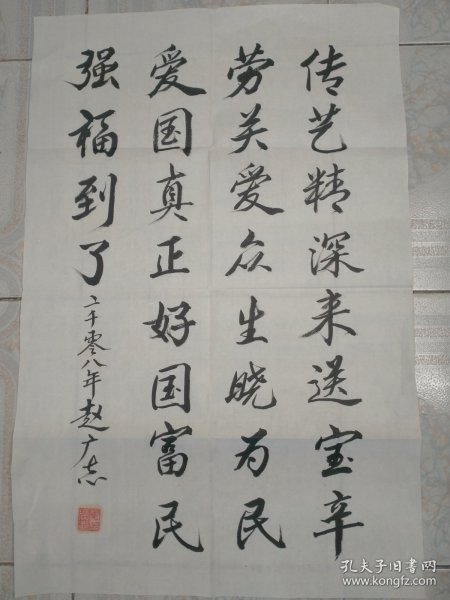 传艺精深来送宝辛
劳关爱众生晓为民
爱国真正好国富民
强福到了
二千零八年赵广志
孔夫子旧书网
www.kongfz.com